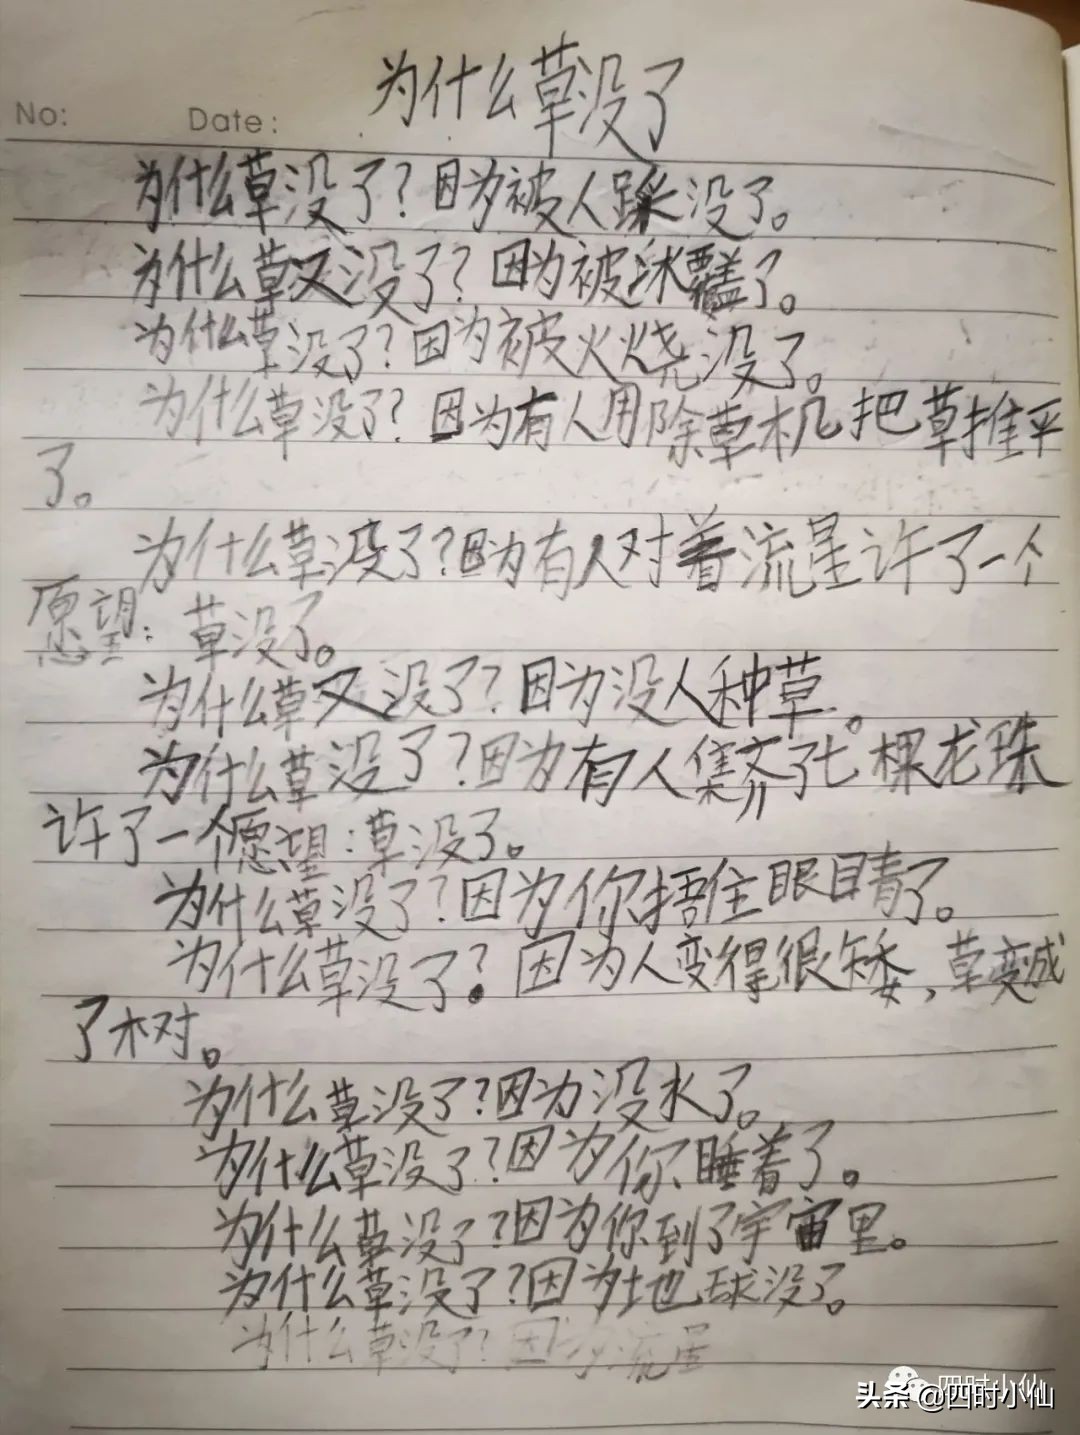 为什么草没了
No:
Date:
为什么草没了？因为被人踩没了。
为什么草又没了？因为被冰覆盖了。
为什么草没了？因为被火烧没了。
为什么草没了？因为有人用除草机把草推平
了。
为什么草没了？因为有人对着流星许了一个
愿望：草没了。
为什么草又没了？因为没人种草。
为什么草没了？因为有人集齐了七棵龙珠
许了一个愿望：草没了。
为什么草没了？因为你捂住眼睛了。
为什么草没了？因为人变得很矮，草变成
了树。
为什么草没了？因为没水了。
为什么草没了？因为你睡着了。
为什么草没了？因为你到了宇宙里。
为什么草没了？因为地球没了。
为什么草没了？因为流星
四时小仙
头条@四时小仙